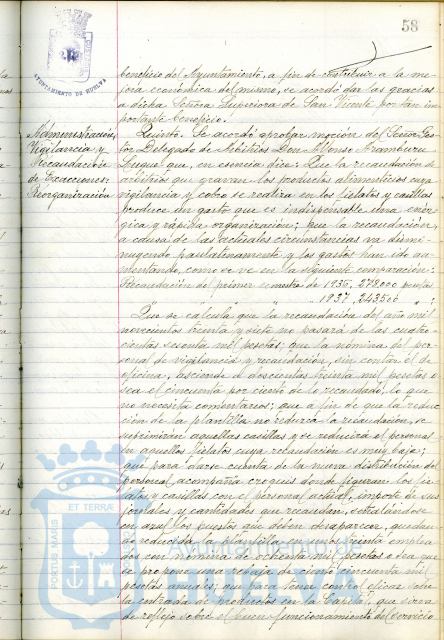 58
AYUNTAMIENTO DE HUELVA
beneficio del Ayuntamiento, a fin de contribuir a la me-
joria económica del mismo, se acordó dar las gracias
a dicha Señora Superiora de San Vicente por tan im-
portante beneficio.
Administración,
Vigilancia y
Recaudación
de Exacciones.
Reorganización
Quinto. Se acordó aprobar moción del Señor Ges-
tor Delegado de Arbitrios Don Alfonso Aramburu
Luque que, en esencia dice: Que la recaudación de
arbitrios que gravan los productos alimenticios cuya
vigilancia y cobro se realiza en los fielatos y casillas
produce un gasto que es indispensable una enér-
gica y rápida organización; que la recaudación,
a causa de las actuales circunstancias va dismi-
nuyendo paulatinamente y los gastos han ido au-
mentando, como se ve en la siguiente comparación:
Recaudación del primer semestre de 1936, 278.000 pesetas
" " " " " 1937, 243500 " ;
Que se calcula que la recaudación del año mil
novecientos treinta y siete no pasará de las cuatro
cientas sesenta mil pesetas; que la nómina del per-
sonal de vigilancia y recaudación, sin contar el de
oficina, asciende a doscientas treinta mil pesetas o
sea el cincuenta por ciento de lo recaudado, lo que
no necesita comentarios; que a fin de que la reduc-
ción de la plantilla no reduzca la recaudación, se
suprimirán aquellas casillas y se reducirá el personal
en aquellos fielatos cuya recaudación es muy baja;
que para darse cuenta de la nueva distribución del
personal, acompaña croquis donde figuran los fie-
latos y casillas con el personal actual, importe de sus
jornales y cantidades que recaudan, señalándose
en azul los puestos que deben desaparecer, quedan-
do reducida la plantilla a unos treinta emplea
dos con nómina de ochenta mil pesetas o sea que
se propone una rebaja de ciento cincuenta mil
pesetas anuales; que para tener control eficaz sobre
la entrada de productos en la Capital, que sirva
de reflejo sobre el buen funcionamiento del servicio
PORTUS MARIS ET TERRÆ
Ayuntamiento de
HUELVA